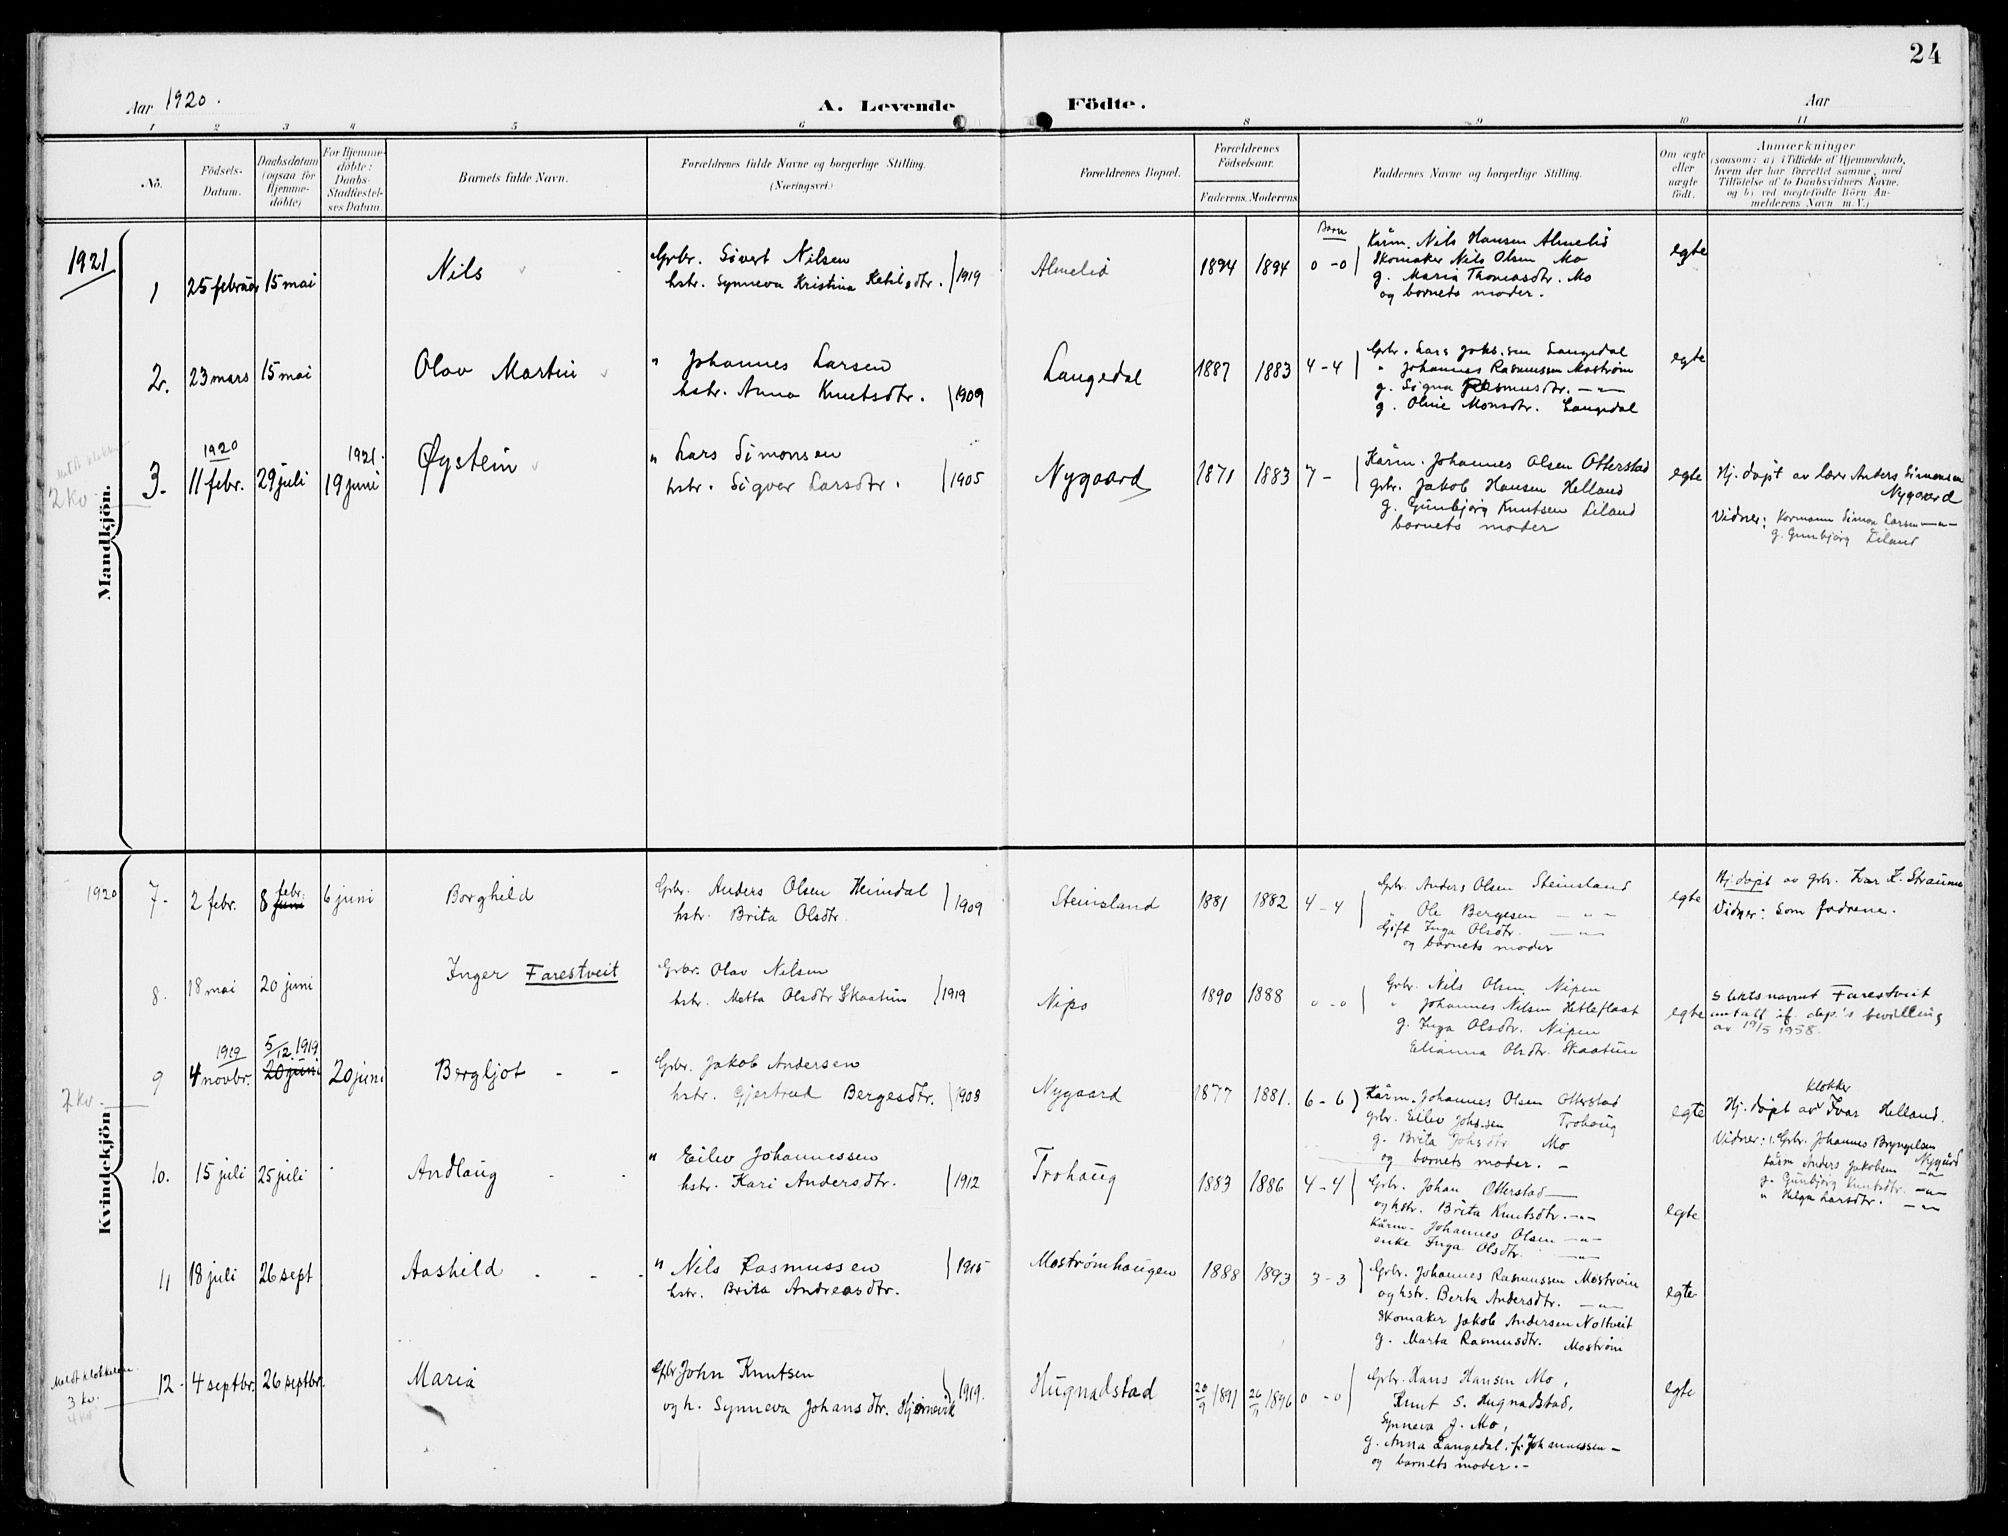 24
Aar 1920.
A. Levende Födte.
Aar
1 2 3 4 5 6 8 9 10 11
No.
Födsels-
Datum.
Daabsdatum
(ogsaa for
Hjemme-
döbte)
For Hjemme-
döbte:
Daabs-
Stadfæstel-
ses Datum.
Barnets fulde Navn.
Forældrenes fulde Navne og borgerlige Stilling.
(Næringsvei.)
Forældrenes Bopæl.
Forældrenes
Födselsaar.
Faderens. Moderens.
Faddernes Navne og borgerlige Stilling.
Om ægte
eller
uægte
födt.
Anmærkninger
(saasom: a) i Tilfælde af Hjemmedaab,
hvem der har forrettet samme, med
Tilföielse af to Daabsvidners Navne.
og b) ved uægtefödte Börn An-
melderens Navn m. V.)
Mandkjön.
1921
1 25 februar 15 mai
Nils
Grbr. Sivert Nilsen
hstr. Synneva Kristina Ketilsdtr. 1919
Almelid
1894 1894
Barn
0 - 0
Kårm. Nils Hansen Almelid
Skomaker Nils Olsen Mo
g. Maria Thomasdtr. Mo
og barnets moder.
egte
2. 23 mars 15 mai
Olav Martin
" Johannes Larsen
hstr. Anna Knutsdtr. 1909
Langedal
1887 1883 4 - 4
Grbr. Lars Johs.sen Langedal
" Johannes Rasmussen Mostrøm
g. Signa Rasmusdtr. — " —
g. Oline Monsdtr. Langedal
egte
2 Kv.
3. 1920
11 febr. 29 juli
1921.
19 juni
Øystein
" Lars Simonsen
hstr. Sigver Larsdtr. 1905
Nygaard
1871 1883 7 -
Kårm. Johannes Olsen Otterstad
Grbr. Jakob Hansen Helland
g. Gunbjørg Knutsen Liland
barnets moder
egte
Hj. døpt av Lærer Anders Simonsen
Nygaard
Vidner: Kormann Simon Larsen — " —
g. Gunbjørg Liland
Kvindekjön
1920
7- 2 febr. 8 febr. juni 6 juni
Borghild
Grbr. Anders Olsen Heimdal
hstr. Brita Olsdtr. 1909
Steinsland
1881 1882 4 - 4
Grbr. Anders Olsen Steinsland
Ole Bergesen — " —
Gift Inga Olsdtr. — " —
og barnets moder
egte
Hj. døpt av grb. Ivar K. Straume
Vidner: Som fadrene.
8. 18 mai 20 juni
Inger Farestveit
Grbr. Olav Nilsen
hstr. Metta Olsdtr Skaatun 1919
Nipo
1890 1888 0 - 0
Grbr. Nils Olsen Nipen
" Johannes Nilsen Hetleflaat
g. Inga Olsdtr. Nipen
Elianna Olsdtr. Skaatun
egte
Slektsnavnet Farestveit
antatt if. dep.'s bevilling
av 19/5 1958.
2 Kv.
9 1919
4 novbr. 5/12. 1919
20 juni 20 juni
Bergljot - -
Grbr. Jakob Andersen
hstr. Gjertrud Bergesdtr. 1908
Nygaard
1877 1881. 6 - 6
Kårm. Johannes Olsen Otterstad
grbr. Eilev Johs.sen Trohaug
g. Brita Johsdtr Mo
og barnets moder. -
egte
Hj. døpt av klokker Ivar Helland.
Vidner: Grbr. Johannes Brynjelsen
Nygård
Kårm Anders Jakobsen — " —
g. Gunbjørg Knutsdtr. — " —
" Helga Larsdtr. — " —
10. 15 juli 25 juli
Andlaug - -
" Eilev Johannessen
hstr. Kari Andersdtr. 1912
Trohaug
1883 1886 4 - 4
Grbr. Johan Otterstad —
og hstr. Brita Knutsdtr. — " —
Kårm. Johannes Olsen — " —
enke Inga Olsdtr. — " —
egte
11 18 juli 26 sept
Aashild - - -
" Nils Rasmussen 1915
hstr. Brita Andreasdtr.
Mostrømhaugen
1888 1893 3 - 3
Grbr. Johannes Rasmussen Mostrøm
og hstr. Berta Andersdtr. — " —
Skomaker Jakob Andersen Noltveit
g. Marta Rasmusdtr. Mostrøm
egte
3 Kv.
4 Kv
12. 4 septbr. 26 septbr.
Maria
Gbr John Knutsen
og h. Synneva Johansdtr. Hjørnevik 1919.
Hugnadstad
20/9 1891 26/11 1896 0 - 0
Grbr. Hans Hansen Mo,
Knut S. Hugnadstad,
Synneva J. Mo,
g. Anna Langedal, f. Johannessen -
og barnets moder. -
egte